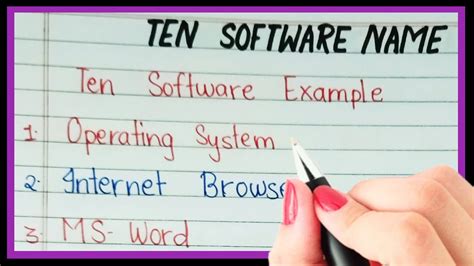 TEN SOFTWARE NAME
Ten Software Example
1. Operating System
2. Internet Browse
3. MS-Word